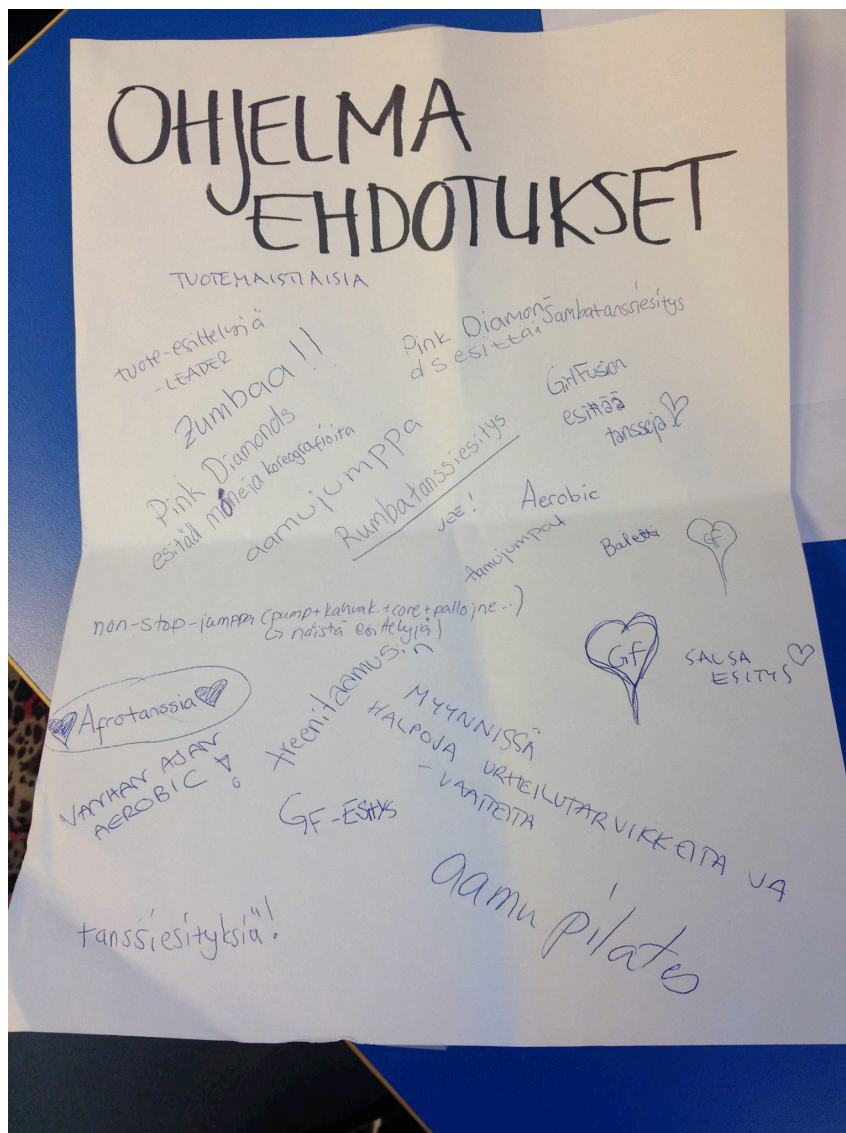 OHJELMA
EHDOTUKSET
TUOTEMAISTIAISIA
tuote-esittelyjä
-LEADER
Zumbaa!!
Pink Diamon-
ds esittää
Sambatanssiesitys
GirlFusion
esittää
tansseja
Pink Diamonds
esitäd moneja koreografioita
aamujumppa
Rumbatanssiesitys
JEE!
Aerobic
Aamujumpat
Baletti
GF
non-stop-jumppa (pump+kahvak.+core+pallo jne...)
↳ näistä esittelyjä)
GF
SALSA
ESITYS
Afrotanssia
treenitaamusin
VANHAN AJAN
AEROBIC!
MYYNNISSÄ
HALPOJA URHEILUTARVIKKEITA JA
-VAATTEITA
GF-ESITYS
aamu pilates
tanssiesityksiä!